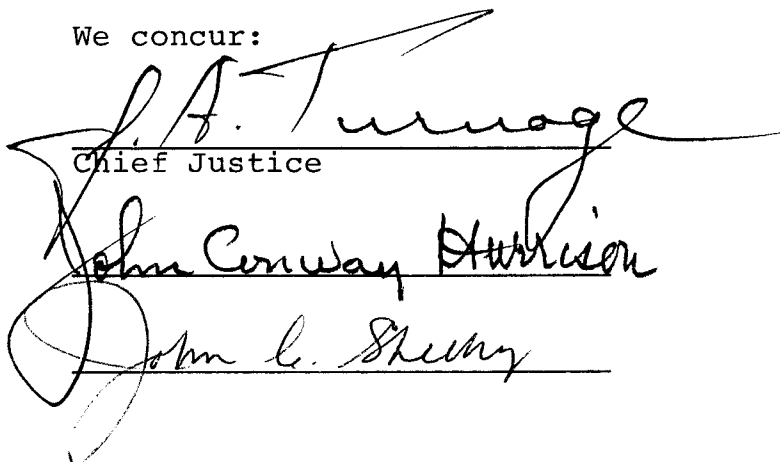 We concur:
J. A. Turnage
Chief Justice
John Conway Harrison
John C. Sheehy